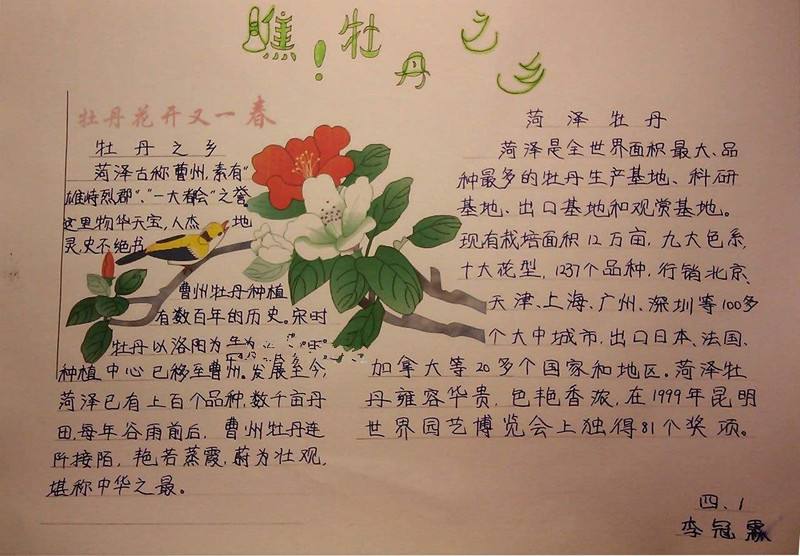 瞧!牡丹之乡
牡丹花开又一春
牡丹之乡
菏泽古称曹州,素有"
雄峙烈郡"、"一大都会"之誉
这里物华天宝,人杰地
灵,史不绝书
曹州牡丹种植
有数百年的历史。宋时
牡丹以洛阳为
种植中心已移至曹州。发展至今,
菏泽已有上百个品种,数千亩丹
田,每年谷雨前后,曹州牡丹连
阡接陌,艳若蒸霞,蔚为壮观,
堪称中华之最。
菏泽牡丹
菏泽是全世界面积最大、品
种最多的牡丹生产基地、科研
基地、出口基地和观赏基地。
现有栽培面积12万亩,九大色系,
十大花型,1237个品种,行销北京、
天津、上海、广州、深圳等100多
个大中城市,出口日本、法国、
加拿大等20多个国家和地区。菏泽牡
丹雍容华贵,色艳香浓,在1999年昆明
世界园艺博览会上独得81个奖项。
四.1
李冠霖